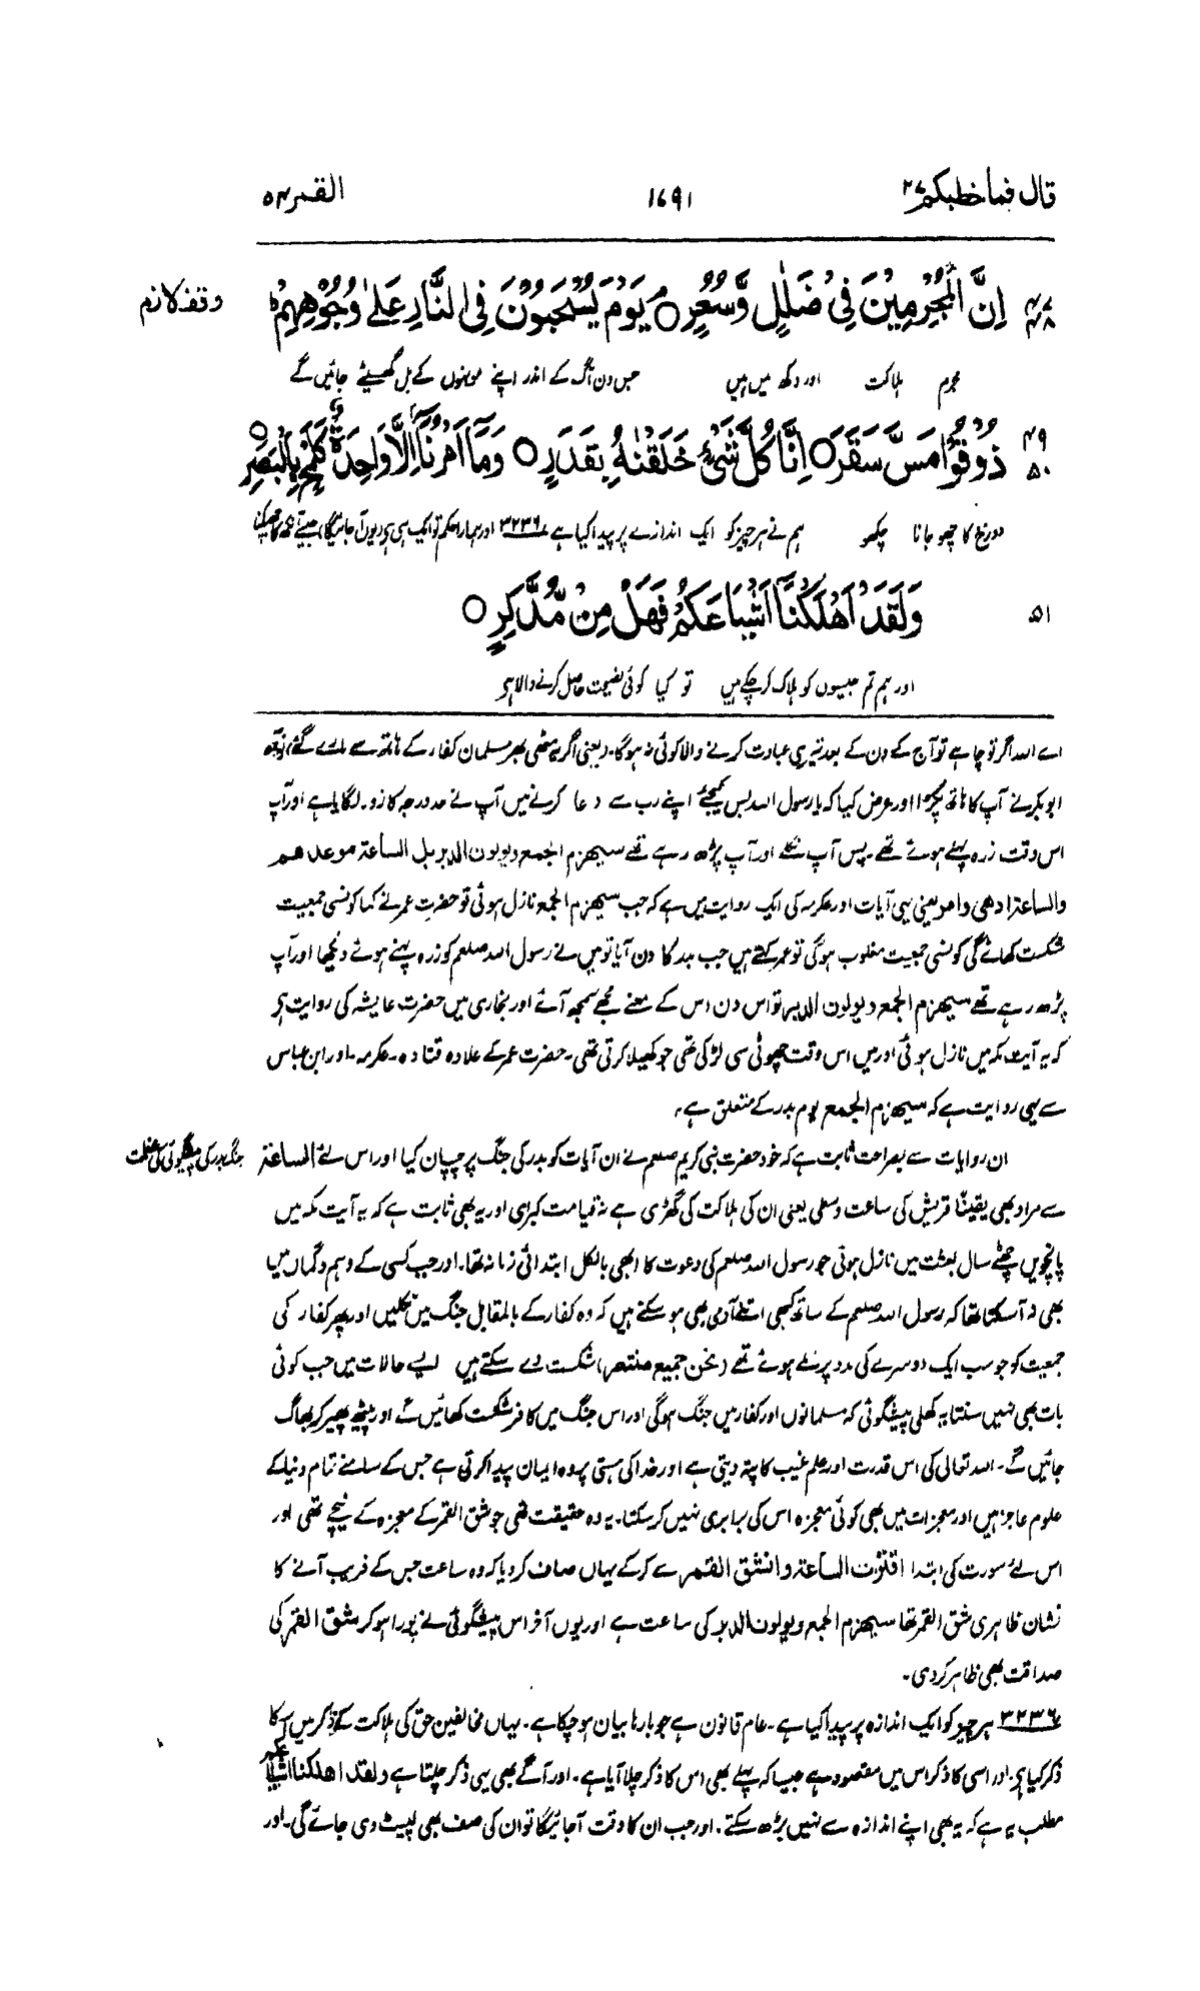 قال فما خطبکم ۲۷
۱۶۹۱
القمر ۵۴
۴۷ ۴۸ اِنَّ الْمُجْرِمِيْنَ فِيْ ضَلٰلٍ وَّسُعُرٍ ۘ يَوْمَ يُسْحَبُوْنَ فِي النَّارِ عَلٰى وُجُوْهِهِمْ ؕ
وقف لازم
مجرم ہلاکت اور دکھ میں ہیں جس دن آگ کے اندر اپنے مونہوں کے بل گھسیٹے جائیں گے
۴۹ ۵۰ ذُوْقُوْا مَسَّ سَقَرَ ○ اِنَّا كُلَّ شَيْءٍ خَلَقْنٰهُ بِقَدَرٍ ○ وَمَآ اَمْرُنَآ اِلَّا وَاحِدَةٌ كَلَمْحٍۭ بِالْبَصَرِ ○
دوزخ کا چھو جانا چکھو ہم نے ہر چیز کو ایک اندازے پر پیدا کیا ہے ۳۲۳۶ اور ہمارا حکم تو ایک ہی ہی یوں آ جائیگا جیسے آنکھ کا جھپکنا
۵۱ وَلَقَدْ اَهْلَكْنَآ اَشْيَاعَكُمْ فَهَلْ مِنْ مُّدَّكِرٍ ○
اور ہم تم جیسوں کو ہلاک کر چکے ہیں تو کیا کوئی نصیحت حاصل کرنے والا ہی
اے اللہ اگر تو چاہے تو آج کے دن کے بعد تیری عبادت کرنے والا کوئی نہ ہوگا۔ (یعنی اگر یہ مٹھی بھر مسلمان کفار کے ہاتھ سے مارے گئے)
ابوبکر نے آپ کا ہاتھ پکڑا اور عرض کیا کہ یا رسول اللہ بس کیجئے اپنے رب سے دعا کرنے میں آپ نے حد درجہ کا زور لگایا ہے اور آپ
اس وقت زرہ پہنے ہوئے تھے۔ پس آپ نکلے اور آپ پڑھ رہے تھے سیھزم الجمع ویولون الدبر بل الساعۃ موعدھم
والساعۃ ادھی وامر یعنی یہی آیات اور عکرمہ کی ایک روایت میں ہے کہ جب سیھزم الجمع نازل ہوئی تو حضرت عمر نے کہا کونسی جمعیت
شکست کھائے گی کونسی جمعیت مغلوب ہوگی تو عمر کہتے ہیں جب بدر کا دن آیا تو میں نے رسول اللہ صلعم کو زرہ پہنے ہوئے دیکھا اور آپ
پڑھ رہے تھے سیھزم الجمع ویولون الدبر تو اس دن اس کے معنے مجھے سمجھ آئے اور بخاری میں حضرت عایشہ کی روایت ہی
کہ یہ آیت مکہ میں نازل ہوئی اور میں اس وقت چھوٹی سی لڑکی تھی جو کھیلا کرتی تھی۔ حضرت عمر کے علاوہ قتادہ۔ عکرمہ۔ اور ابن عباس
سے یہی روایت ہے کہ سیھزم الجمع یوم بدر کے متعلق ہے،
ان روایات سے بصراحت ثابت ہے کہ خود حضرت نبی کریم صلعم نے ان آیات کو بدر کی جنگ پر چسپان کیا اور اس لئے الساعۃ
جنگ بدر کی پیشگوئی کی عظمت
سے مراد بھی یقیناً قریش کی ساعت وسطی یعنی ان کی ہلاکت کی گھڑی ہے نہ قیامت کبرٰی اور یہ بھی ثابت ہے کہ یہ آیت مکہ میں
پانچویں چھٹے سال بعثت میں نازل ہوئی جو رسول اللہ صلعم کی دعوت کا ابھی بالکل ابتدائی زمانہ تھا۔ اور جب کسی کے وہم وگماں میں
بھی نہ آ سکتا تھا کہ رسول اللہ صلعم کے ساتھ کبھی اتنے آدمی بھی ہو سکتے ہیں کہ وہ کفار کے بالمقابل جنگ میں نکلیں اور پھر کفار کی
جمعیت کو جو سب ایک دوسرے کی مدد پر تلے ہوئے تھے (نحن جمیع منتصر) شکست دے سکتے ہیں ایسے حالات میں جب کوئی
بات بھی نہیں سنتا یہ کھلی پیشگوئی کہ مسلمانوں اور کفار میں جنگ ہوگی اور اس جنگ میں کافر شکست کھائیں گے اور پیٹھ پھیر کر بھاگ
جائیں گے۔ اللہ تعالٰی کی اس قدرت اور علم غیب کا پتہ دیتی ہے اور خدا کی ہستی پر وہ ایمان پیدا کرتی ہے جس کے سامنے تمام دنیا کے
علوم عاجز ہیں اور معجزات میں بھی کوئی معجزہ اس کی برابری نہیں کر سکتا۔ یہ وہ حقیقت تھی جو شق القمر کے معجزہ کے نیچے تھی اور
اس لئے سورت کی ابتدا اقتربت الساعۃ وانشق القمر سے کر کے یہاں صاف کر دیا کہ وہ ساعت جس کے قریب آنے کا
نشان ظاہری شق القمر تھا سیھزم الجمع ویولون الدبر کی ساعت ہے اور یوں آخر اس پیشگوئی نے پورا ہو کر شق القمر کی
صداقت بھی ظاہر کر دی۔
۳۲۳۶ ہر چیز کو ایک اندازہ پر پیدا کیا ہے۔ عام قانون ہے جو بارہا بیان ہو چکا ہے۔ یہاں مخالفین حق کی ہلاکت کے ذکر میں اس کا
ذکر کیا ہی۔ اور اسی کا ذکر اس میں مقصود ہے جیسا کہ پہلے بھی اس کا ذکر چلا آیا ہے۔ اور آگے بھی یہی ذکر چلتا ہے ولقد اھلکنا اشیاعکم
مطلب یہ ہے کہ یہ بھی اپنے اندازہ سے نہیں بڑھ سکتے۔ اور جب ان کا وقت آ جائیگا تو ان کی صف بھی لپیٹ دی جائے گی۔ اور